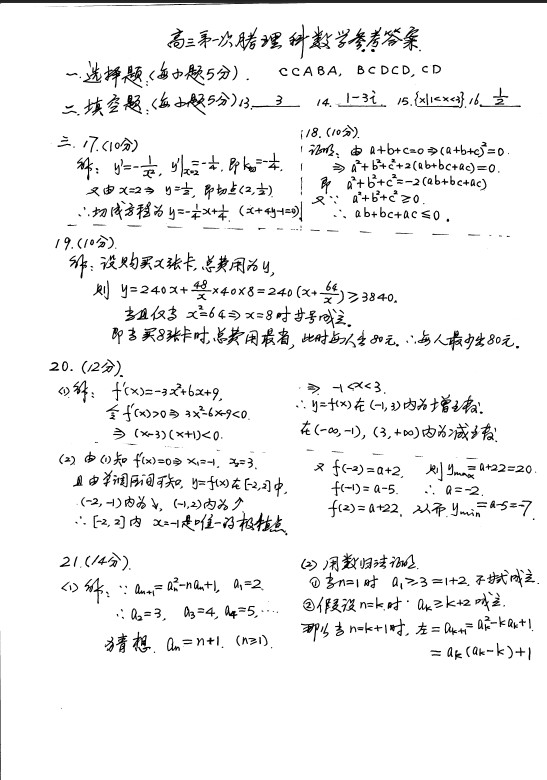 高三第一次月考理科数学参考答案
一.选择题:(每小题5分). CCABA, BCDCD, CD
二.填空题:(每小题5分)13. 3 14. 1-3i 15.{x|1<x<3}.16. 1/2
三.17.(10分)
解: y'=-1/x², y'|x=2=-1/4. 即k切=-1/4.
又由x=2⇒y=1/2, 即切点(2,1/2)
∴切线方程为y=-1/4x+1/4. (x+4y-1=0)
18.(10分).
证明: 由a+b+c=0⇒(a+b+c)²=0.
⇒a²+b²+c²+2(ab+bc+ac)=0.
即 a²+b²+c²=-2(ab+bc+ac)
又∵ a²+b²+c²≥0.
∴ ab+bc+ac≤0.
19.(10分).
解: 设购买x张卡,总费用为y,
则 y=240x+48/x×40×8=240(x+64/x)≥3840.
当且仅当 x²=64⇒x=8时等号成立.
即当买8张卡时,总费用最省, 此时每人生80元. ∴每人最少生80元.
20.(12分).
(1)解: f'(x)=-3x²+6x+9,
令f'(x)>0⇒3x²-6x-9<0.
⇒(x-3)(x+1)<0.
⇒ -1<x<3.
∴y=f(x)在(-1,3)内为增函数.
在(-∞,-1), (3,+∞)内为减函数
(2) 由(1)知 f'(x)=0⇒x₁=-1, x₂=3.
且由单调区间可知, y=f(x)在[-2,2]中,
(-2,-1)内为↘, (-1,2)内为↗
∴[-2,2]内 x=-1是唯一的极值点.
又 f(-2)=a+2, 则ymax=a+22=20.
f(-1)=a-5. ∴ a=-2.
f(2)=a+22, 从而 ymin=a-5=-7.
21.(14分).
(1)解: ∵ aₙ₊₁=aₙ²-naₙ+1, a₁=2.
∴a₂=3, a₃=4, a₄=5,…
猜想. aₙ=n+1. (n≥1).
(2) 用数归法证明.
①当n=1时 a₁≥3=1+2. 不等式成立.
②假设n=k时. aₖ≥k+2成立.
那么当n=k+1时, 左=aₖ₊₁=aₖ²-kaₖ+1.
=aₖ(aₖ-k)+1